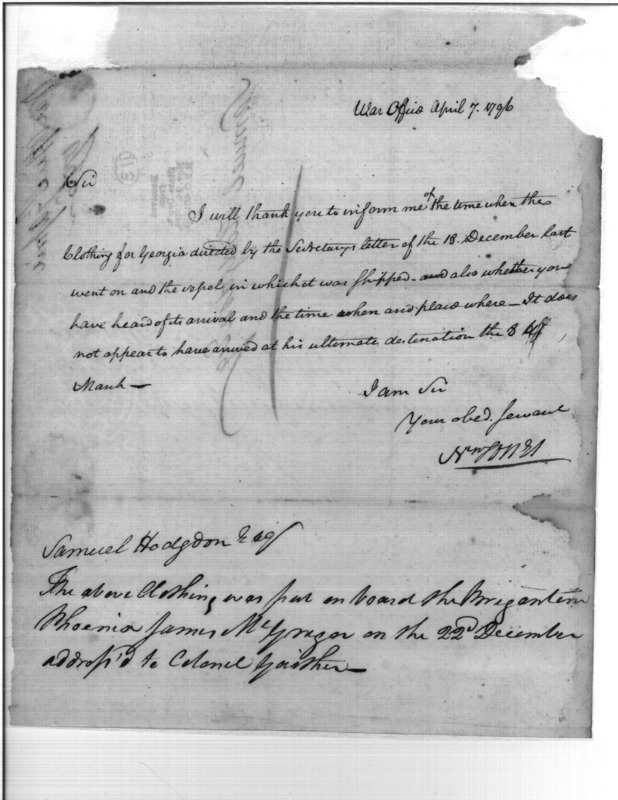 War Office April 7. 1796
Sir
I will thank you to inform me of the time when the
Clothing for Georgia directed by the Secretarys letter of the 18. December last
went on and the vessel in which it was shipped - and also whether you
have heard of its arrival and the time when and place where - It does
not appear to have arrived at his ultimate destination the 3
March -
I am Sir
Your obed. servant
Jones
Samuel Hodgdon Esq
The above Clothing was put on board the Brigantine
Phoenix James McGregor on the 22d December
address'd to Colonel Gaither -